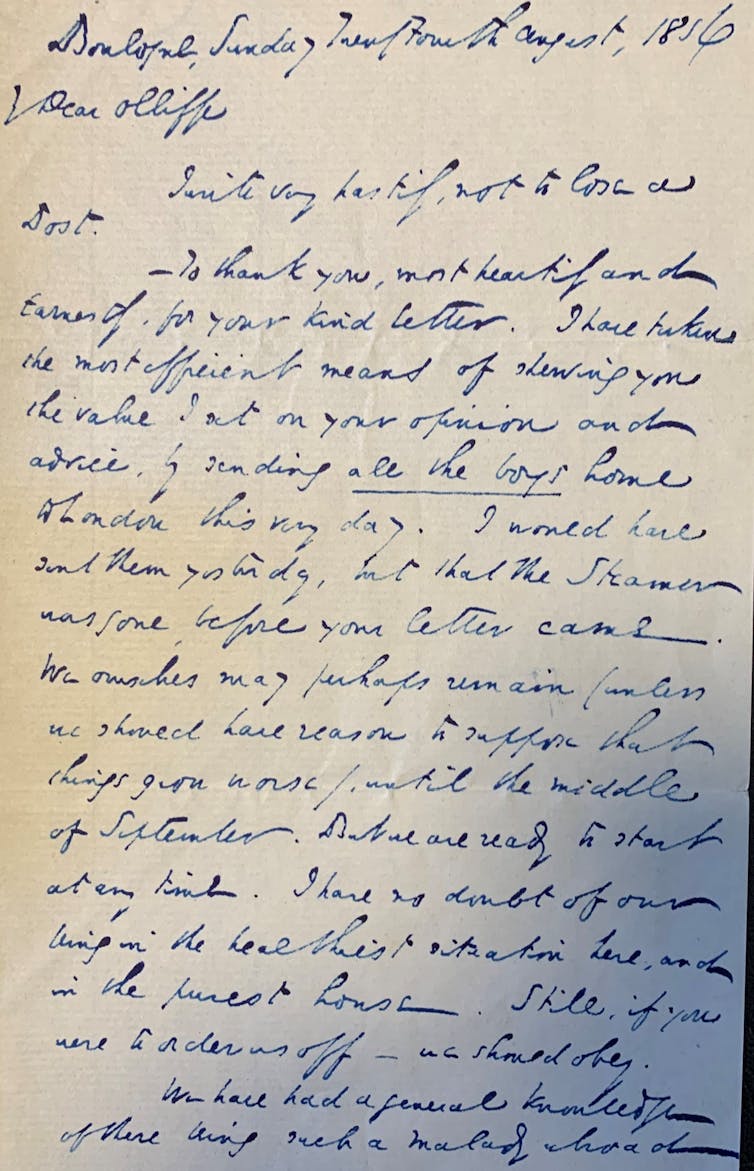 Boulogne, Sunday Twenty Fourth August, 1856
My Dear Olliffe
I write very hastily, not to lose a
Post.
—To thank you, most heartily and
earnestly, for your kind letter. I have taken
the most efficient means of shewing you
the value I set on your opinion and
advice, by sending all the boys home
to London this very day. I would have
sent them yesterday, but that the Steamer
was gone, before your letter came.
We ourselves may perhaps remain (unless
we should have reason to suppose that
things grow worse), until the middle
of September. But we are ready to start
at any time. I have no doubt of our
being in the healthiest situation here, and
in the purest house. Still, if you
were to order us off — we should obey.
We have had a general knowledge
of there being such a malady abroad